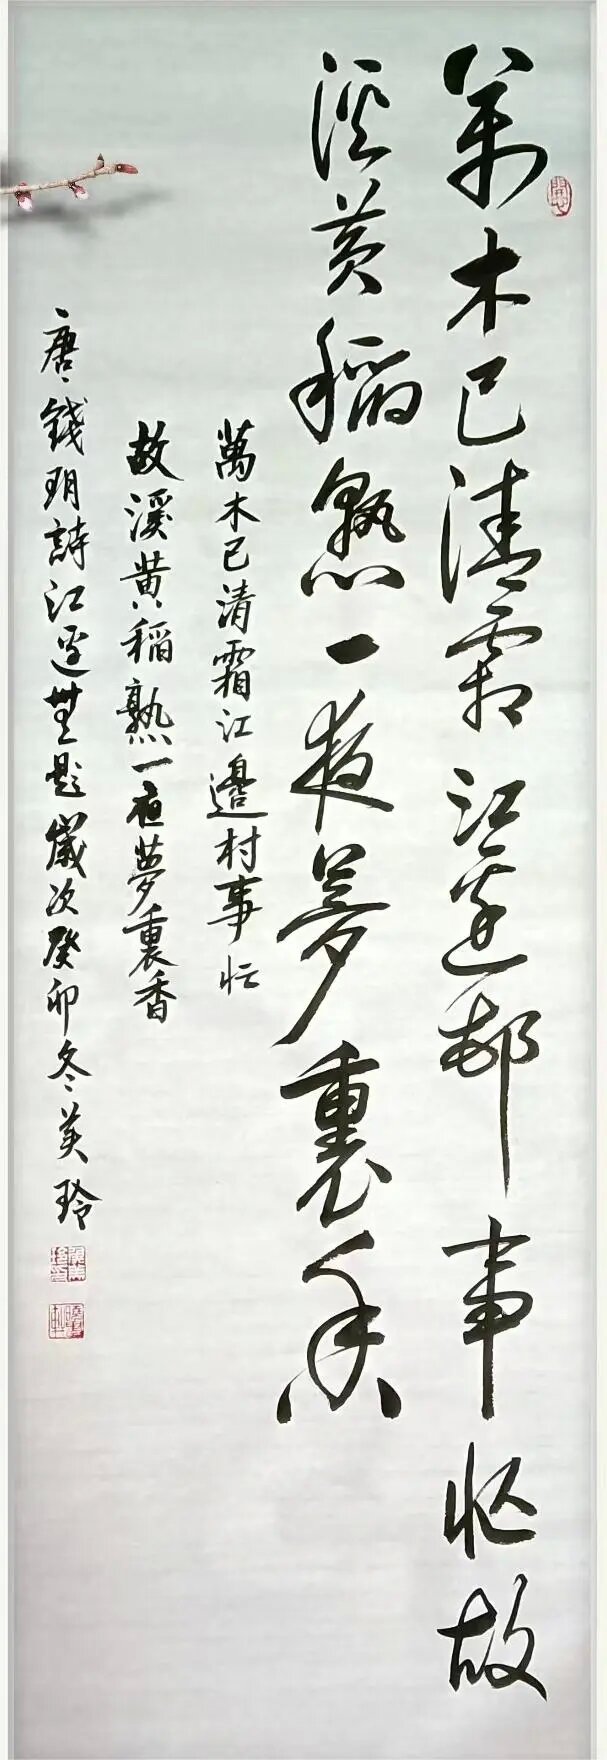 萬木已清霜江邊邨事忙故
溪黃稻熟一夜夢裏香
萬木已清霜江邊村事忙
故溪黄稻熟一夜夢裏香
唐錢珝詩江邊無題歲次癸卯冬美玲